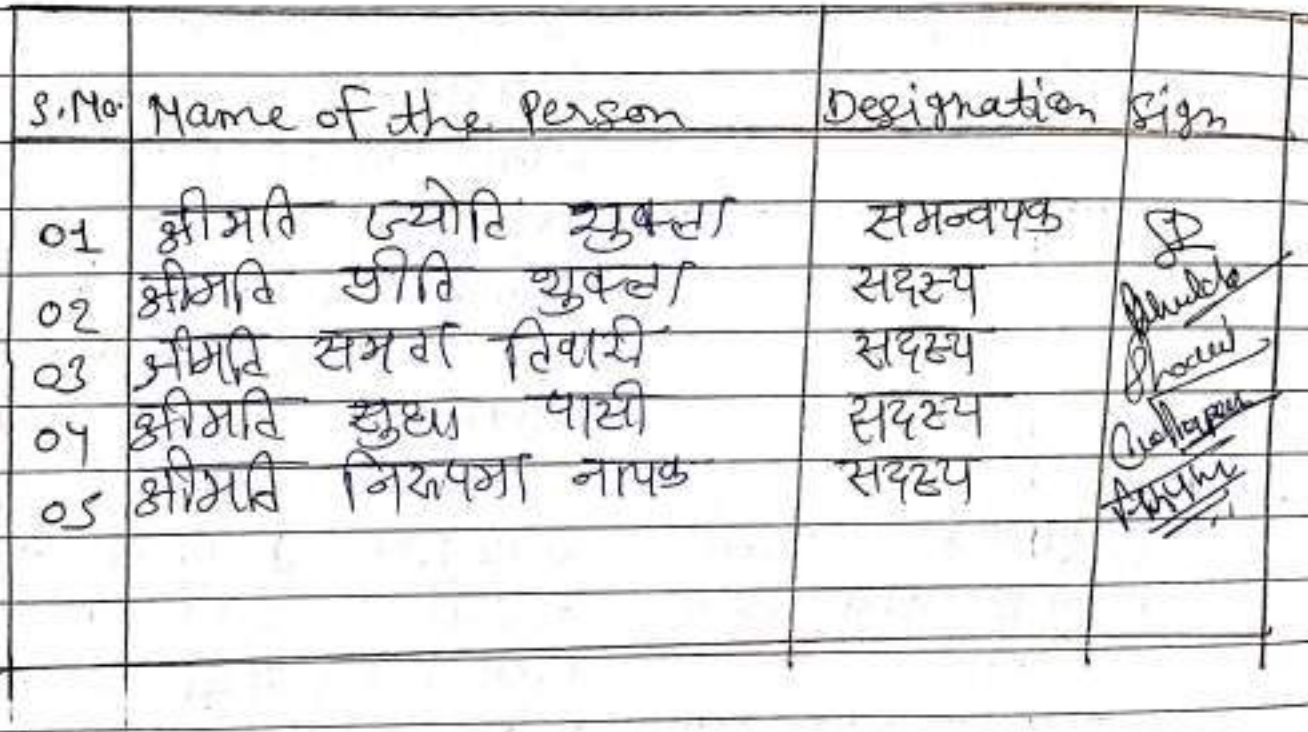 S.No. Name of the Person Designation Sign
01 श्रीमति ज्योति शुक्ला समन्वयक
02 श्रीमति प्रीति शुक्ला सदस्य
03 श्रीमति तिवारी सदस्य
04 श्रीमति सुधा पासी सदस्य
05 श्रीमति निरूपमा नायक सदस्य